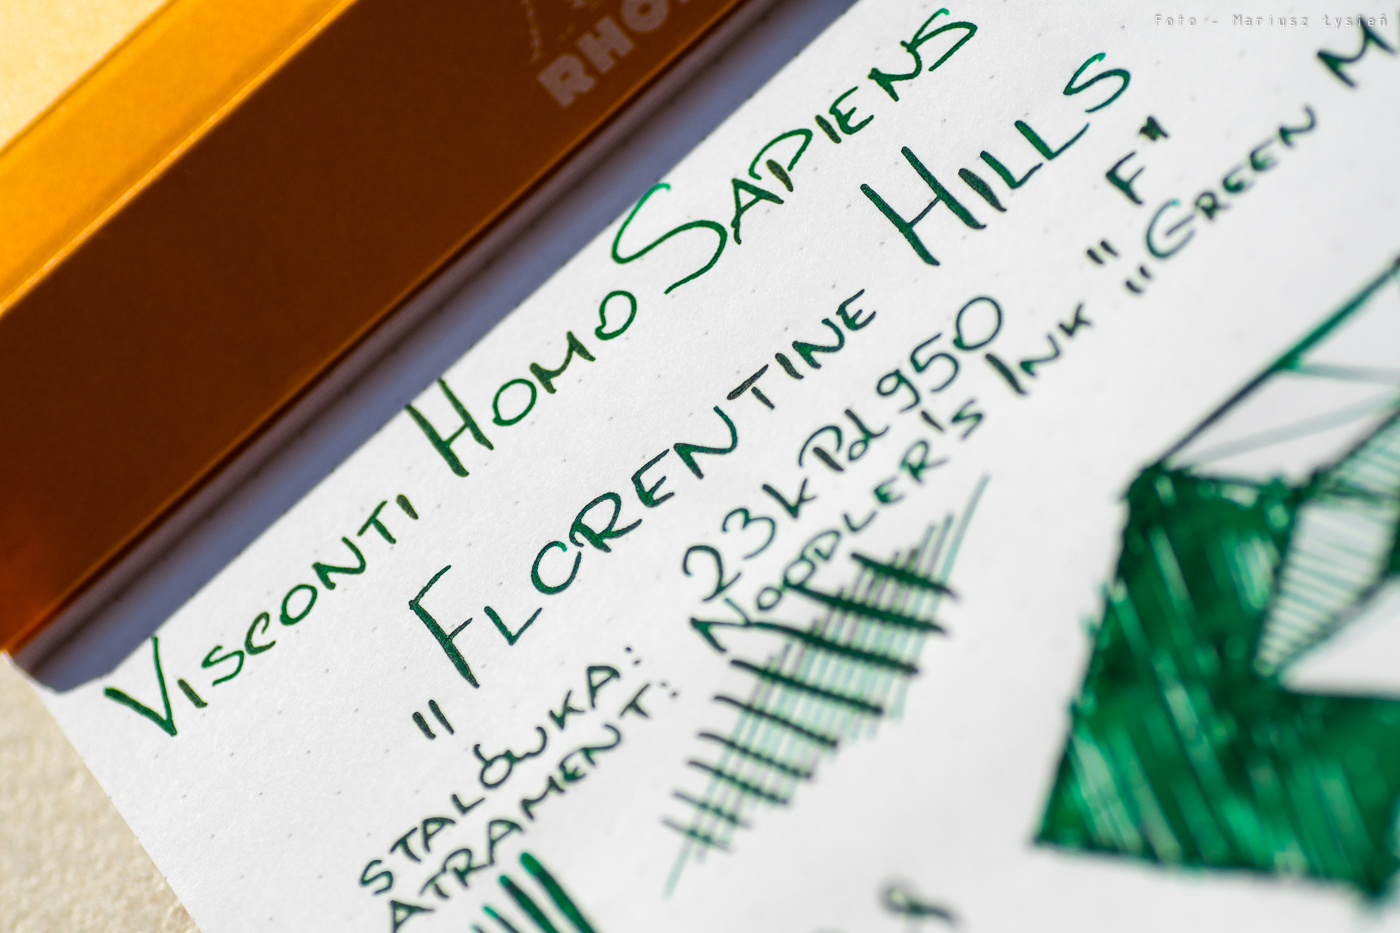 Foto - Mariusz Łysień
RHO
VISCONTI HOMO SAPIENS
"FLORENTINE HILLS"
STALÓWKA: 23k Pd 950 "F"
ATRAMENT: NOODLER'S INK "GREEN M